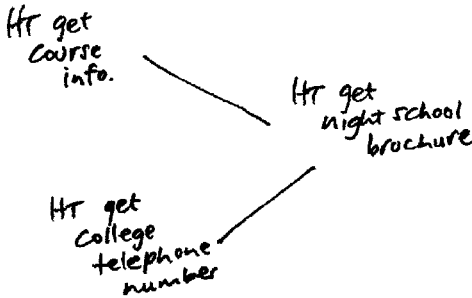 HT get
course
info.
HT get
night school
brochure
HT get
college
telephone
number